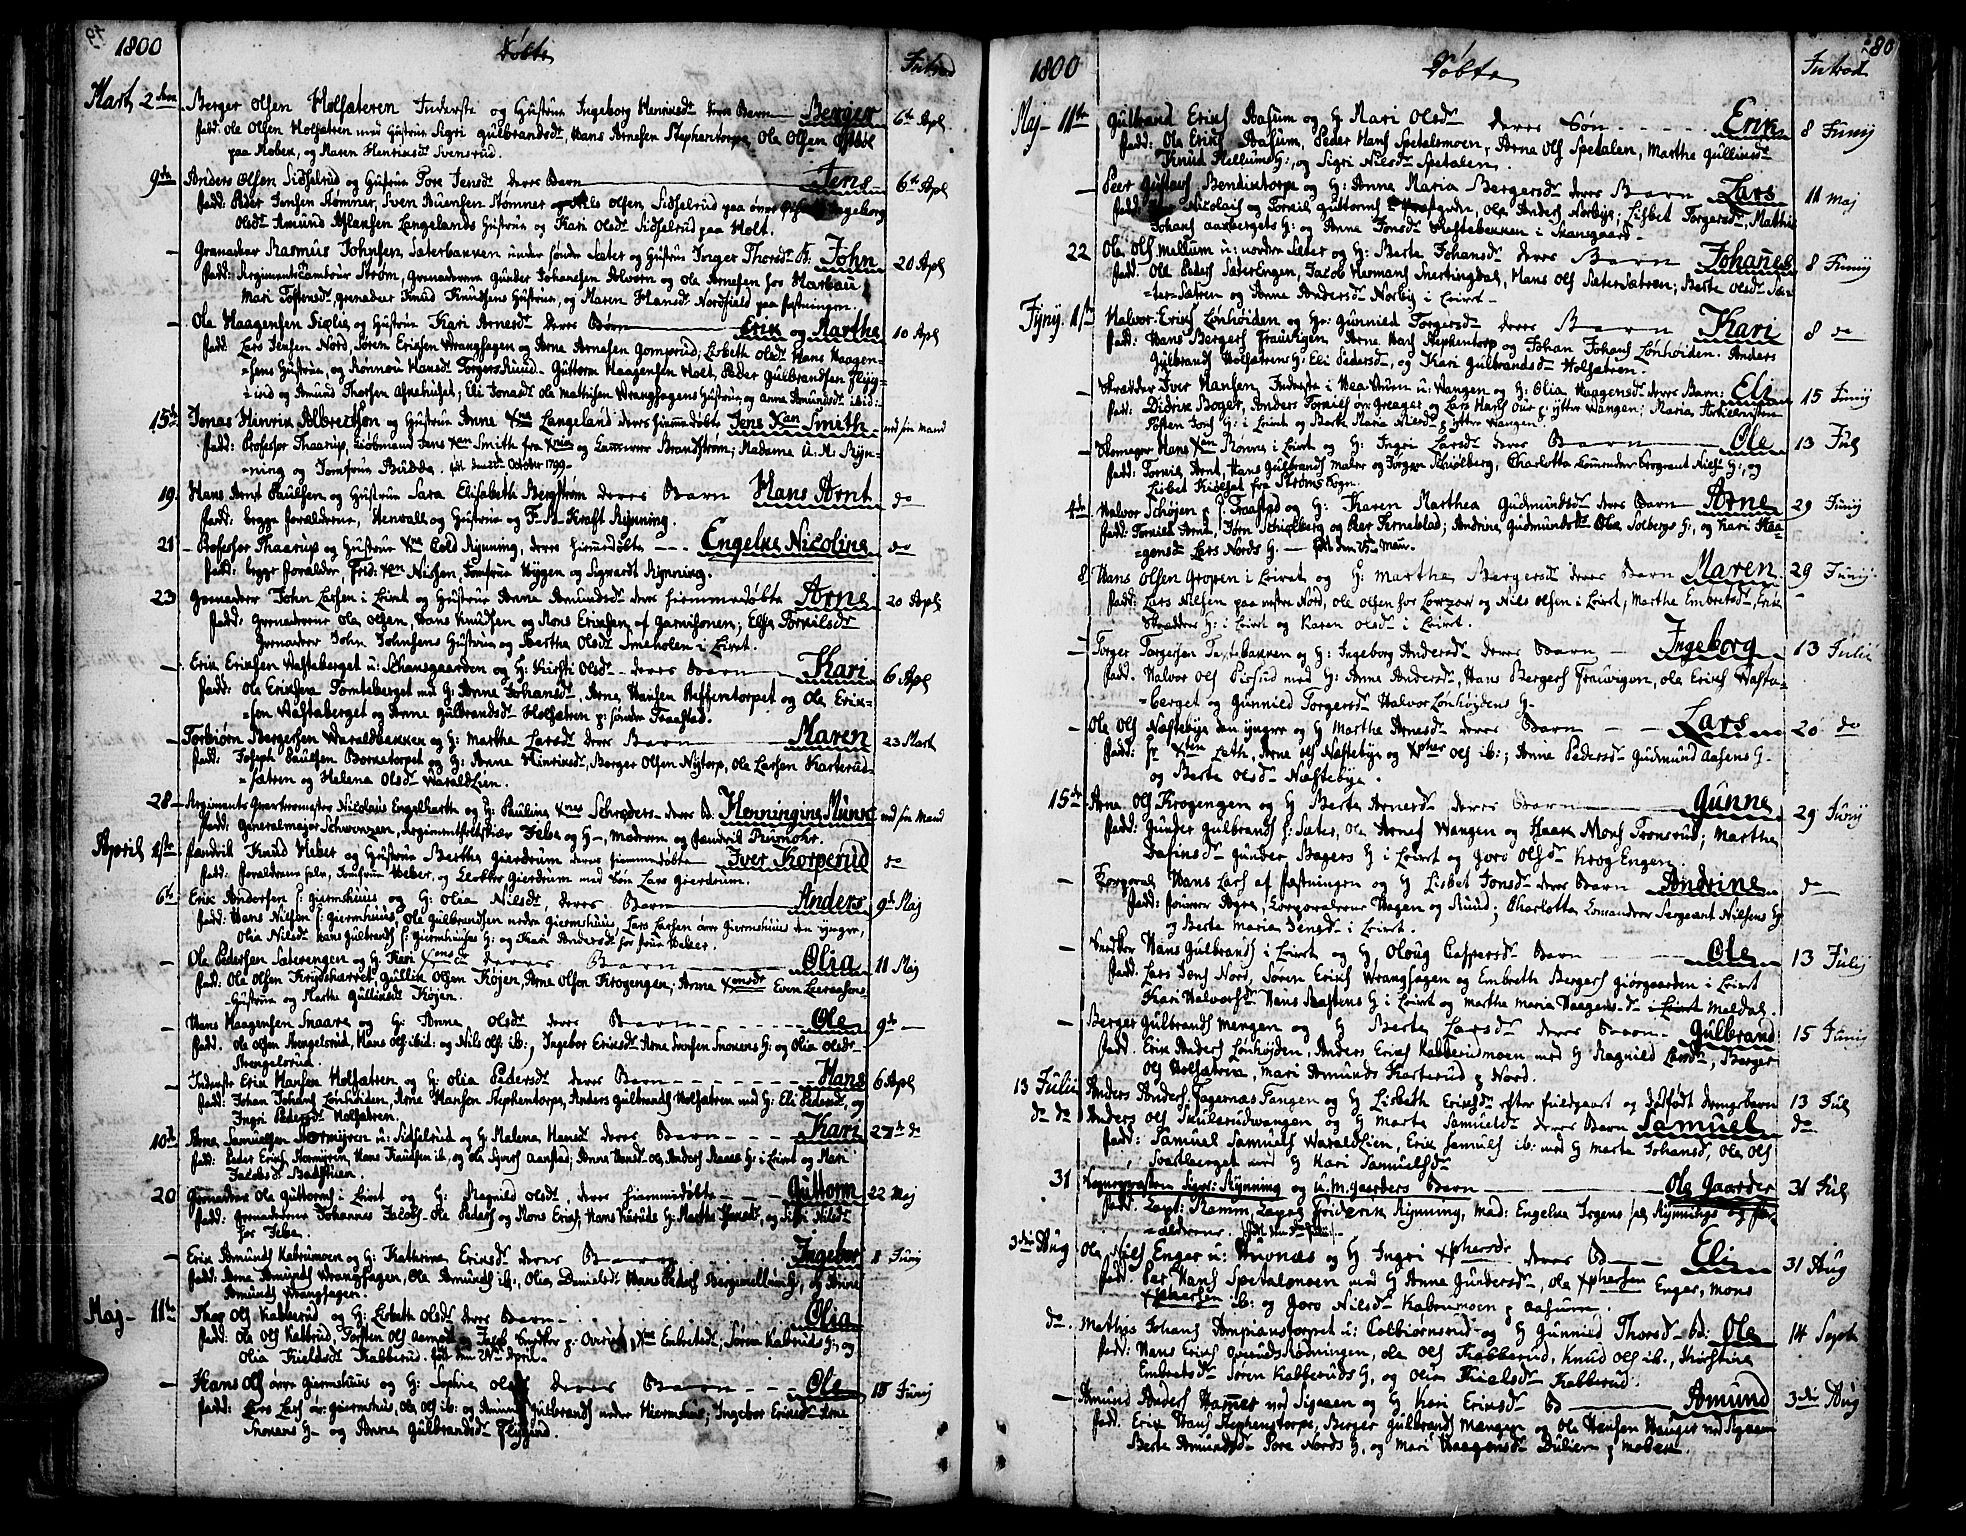 1800
Döbte
Introd
Mart 2den Berger Olsen Holsæteren Inderste og Hustrue Ingeborg Henriksdr deres Barn Berger 6te Apl
fadd: Ole Olsen Holsætren med Hustrue Sigri Gulbrandsdr, Hans Arnesen Stephentorpe, Ole Olsen
paa Moben, og Maren Henriksdr Svensrud.
9de Anders Olsen Sidselrud og Hustrue Pore Jensdr deres Barn Jens 6te Apl
fadd: Peder Jensen Stømner, Sven Buensen Stømner og Nils Olsen Sidselrud paa øvre Ingeborg
Olsdr Amund Aslaksen Langelands Hustrue og Kari Olsdr Sidselrud paa Holt.
Grenadeer Rasmus Johnsen, Sæterbakken under søndre Sæter og Hustrue Inger Thorsdr B. John 20 Apl
fadd: Regimentstambour Strøm, Grenadererne Gunder Johansen Aslvern og Ole Arnesen hos Harbou
Mari Tostensdr, grenadeer Knud Knudsens Hustrue, og Maren Hansdr Nordfield paa fæstningen.
Ole Haagensen Siølie og Hustrue Kari Arnesdr deres Børn Erik og Marthe 10 Apl
fadd: Lars Jensen Nord, Søren Eriksen Wranghagen og Arne Arnesen Gomsrud; Lisbeth Olsdr Hans Haagen-
=sens Hustrue, og Rønnou Hansdr TorgersRuud - Guttorm Haagensen Holt, Peder Gulbrandsen Flyg-
=ind og Amund Thorsen ; Eli Jonasdr Ole Mathisen Wranghagens Hustrue og Anne Amundsdr ibid:
15de Jonas Henrik Albrethson og Hustrue Anne Langeland deres hiemmedøbte Jens Xan Smith ved sin Mand
fadd: Professor Thaarup, Jens Xen Smith fra Xnia og Cammerer Brandstrøm; Madame A: M: Ryn-
=ning og Jomfrue Budde. født den October 1799.
19. Hans Arnt Paulsen og Hustrue Sara Elisabeth Bergstrøm deres Barn Hans Arnt do
fadd: begge forældrene, Henvall og Hustrue og F: B. Kraft Rynning.
21 Professor Thaarup og Hustrue Cold Rynning, deres hiemmedøbte Engelke Nicoline do
fadd: begge forældre, Frid: Xen Nissen, Jomfrue Wygen og Sigvardt Rynning.
23 Grenadeer John Larsen i Leiret og Hustrue Anne Amundsdr deres hiemmedøbte Arne 20 Apl
fadd: Grenaderene Ole Olsen, Hans Knudsen og Mons Eriksen af Garnisonen; Else Torkilsdr
Grenadeer John Johnsens Hustrue og Berthe Olsdr Smeholen i Leiret.
Erik Eriksen Wastaberget u: Skansgaarden og H: Kirsti Olsdr deres Barn Kari 6 Apl
fadd: Ole Eriksen Tomteberget med H: Anne Johansdr, Arne Hansen Steffentorpet og Ole Erik-
=sen Wastaberget og Anne Gulbrandsdr Holsætren p: søndre Traastad.
Torbiørn Bergersen Waraldbakken og H: Marthe Larsdr deres Barn Maren 23 Mart
fadd: Joseph Paulsen Bornetorpet og H: Anne Henriksdr, Berger Olsen Nytorp, Ole Larsen Karterud-
=sætren og Helena Olsdr Waraldlien.
28 Regiments Quarteermester Nicolaus Engelhart og H: Pauline Xne Schrøders deres B. Henningine Munk ved sin Mand
fadd: Generalmajor Schwenzen, Regimentsfeltskiær Jebe og H, Madme og fændrik Reimohr.
April 1ste fændrik Knud Weber og Hustrue Berthe Gierdrum deres hiemmedøbte Iver Korperud do
fadd: forældrene selv, Jomfrue Weber, og Klokker Gierdrum med Søn Lars Gierdrum.
6te Erik Andersen s: Giermshuus og H: Olia Nilsdr, deres Barn Anders 9de Maj
fadd: Hans Nilsen s: Giermshuus, Ole Gulbrandsen nedre Giermshuus, Lars Larsen øvre Giermshuus den yngre,
Olia Nilsdr Hans Gulbrands s: Giermhuuses H: og Kari Andersdr for frue Weber.
Ole Pedersen Sæterengen og H: Kari Xensdr deres Barn Olia 11 Maj
fadd: Ole Olsen Kripsharret, Gullik Olsen Køjen, Arne Olsen Krogengen; Anne Xensdr Even Leeraasens
Hustrue og Marthe Gulliksdr Køjen.
Hans Haagensen Snaare og H: Anne Olsdr deres Barn Ole 9de
fadd. Ole Olsen Strengelsrud, Hans Ols ibid: og Nils Ols ib:, Ingebor Eriksdr Arne Svensen Snorens H: og Olia Olsdr
Strengelsrud.
Inderste Erik Hansen Holsætren og H: Olia Pedersdr deres Barn Hans 6 Apl
fadd: Johan Johans Lønhøiden, Arne Hansen Stephentorpe, Anders Gulbrands Holsætren med H: Eli Pedersdr, og
Ingri Pedersdr Holsætren.
10de Arne Samuelsen Hormyren u: Sidselrud og H: Malena Hansdr deres Barn Kari 27de do
fadd: Peder Eriks Hormyren, Hans Knudsen ib, og Ole Syvers Aanstad; Anne Hansdr Ole Anders Raaes H: i Leiret og Mari
Jacobsdr Badstuen.
20 Grenadeer Ole Guttorms i Leiret og H: Ragnild Olsdr, deres hiemmedøbte Guttorm 22 Maj
fadd: Grenadererne Johannes Jacobs, Ole Peders og Mons Eriks; Hans Kieruds H: Marthe, og Siri Nilsdr
for Jebe.
Erik Amunds Kabrumoen og H: Kathrine Eriksdr deres Barn Ingebor 1 Junij
fadd: Arne Amunds Wranghagen, Ole Amunds ib:, Olia Danielsdr Hans Peders Bergmellums H, og Anne
Amunds Wranghagen.
Maj 11te Thor Ols Kabberud, og H: Lisbeth Olsdr deres Barn Olia
fadd: Ole Ols Kabbrud, Torsten Ols Aamot, Jacob Snedker p: Overud, Xne Embretsdr, Søren Kabbruds H:, og
Olia Kieldsdr Kabberud. født den 24de April.
Hans Ols øvre Giermshuus og H: Sophie Olsdr deres Barn Ole 15 Junij
fadd: Lars Lars øv: Giermshus, Ole Ols ib: og Amund Gulbrands nedre Hiermshus; Ingebor Eriksdr Arne
Snorens H og Anne Gulbrandsdr Flygind.
280
1800
Döbte
Introd
Maj 11te Gulbrand Eriks Aasum og H: Mari Olsdr deres Søn Erik 8 Junij
fadd: Ole Eriks Aasum, Peder Hans Spetalsmoen, Arne Ols Spetalen, Marthe Gulliksdr
Knud Mellums H:, og Sigri Nilsdr Spetalen.
Peer Gustavs Bendiktorpe og H: Anne Maria Bergersdr deres Barn Lars 11 Maj
fadd: Nicolais og Torkil Guttorms, Ole Anders Norbye; Lisbet Torgersdr, Mathis
Johans Aaxbergets H: og Anne Jonsdr Wastebakken i Skansgaard.
22 Ole Ols Mellum u: nordre Sæter og H: Berte Johansdr deres Barn Johanes 8 Junij
fadd: Ole Peders SæterEngen, Jacob Hermans Snertingdal, Hans Ols SæterSætren; Berte Olsdr Sæ-
=ter-Sætren og Anne Andersdr Norby i Leiret.
Jyny. 1ste Halvor Eriks Lønhøiden og H: Gunnild Torgersdr deres Barn Kari 8 do
fadd: Hans Bergers Frauvigen, Arne Hans Stephentorp og Johan Johans Lønhøiden. Anders
Gulbrands Holsætrens H: Eli Pedersdr, og Kari Gulbrandsdr Holsætren.
Skrædder Iver Hansen Inderste i Waathum u: Wangen og H: Olia Haagensdr deres Barn; Eli 15 Junij
fadd: Didrik Boger, Anders Torkils øv: Greager og Lars Hans Our p: ytter Wangen; Maria Artilleristen
Posten Jons H: i Leiret og Marte Maria Nilsdr p: ytter Wangen.
Skomager Hans Xan Rønne i Leiret og H: Ingri Larsdr deres Barn Ole 13 Jul
fadd: Torkil Arnt, Hans Gulbrands Maler og Jørgen Schiølberg; Charlotta Comender Sergeant Niels H:, og
Lisbet Kielsat fra Strøms sogn.
4de Halvor Schøjen p: s: Traastad og H: Karen Marthea Gudmundsdr deres Barn Arne 29 Junij
fadd: Torkild Arnt, Jørn Schiølberg og Peer Ferneblad; Andrine Gudmundsdr Ole Solbergs H:, og Kari Haa-
=gensdr Lars Nords H født den 25de Maj.
8 Hans Olsen Gropen i Leiret og H: Marthe Bergersdr deres Barn Maren 29 Junij
fadd: Lars Nilsen paa nestre Nord, Ole Olsen for Lowzow og Nils Olsen i Leiret; Marthe Embretsdr, Erik
Skrædders H: i Leiret og Karen Olsdr i Leiret.
Torger Torgersen Tæxtebakken og H: Ingeborg Andersdr deres Barn Ingeborg 13 Julii
fadd. Halvor Ols Pirsud med H: Anne Andersdr, Hans Bergers Frauvigen, Ole Eriks Wasta-
=berget og Gunnild Torgersdr Halvor Lønhøydens H
Ole Ols Næstebye den yngere og H Marthe Arnesdr deres Barn Lars 20 do
fadd: hr Leth, Arne Ols Næstebye og Xpher Ols ib:; Anne Pedersdr Gudmund Aasens H
og Berte Olsdr Næstebye.
15de Arne Ols Krogengen og H Berte Arnesdr deres Barn Gunne 29 Junij
fadd: Gunder Gulbrands s: Sæter, Ole Arnes Wangen og Haak Mons Tronsrud; Marthe
Dafinsdr Gunder Bagers H i Leiret og Joro Olsdr KrogEngen.
Korporal Hans Lars af fæstningen og H Lisbet Jonsdr deres Barn Andrine do
fadd: founeer Agre, Corporalerne Hagen og Ruud; Charlotta Comandeer Sergeant Nilsens H
og Berte Maria Jensdr i Leiret.
Snedker Hans Gulbrands i Leiret og H, Oloug Caspersdr Barn Ole 13 Julij
fadd: Lars Jens Nord, Søren Eriks Wranghagen og Embreth Bergers Giörgaarden i Leiret
Kari Halvorsdr Hans Haftens H i Leiret og Marthe Maria Haagens-dr i Leiret Meldal.
Berger Gulbrands Mengen og H Berte Larsdr deres Barn Gulbrand 15 Junij
fadd: Erik Anders Lønhøjden, Anders Eriks Kabberudmoen med H Ragnild Larsdr, Berger
Ols Holsætren, Mari Amunds Karterud p Nord.
13 Julii Anders Anders FagernæsTangen og H Lisbeth Eriksdr efter fuldgaaet og dødfødt drengebarn 13 Jul
do do Anders Ols Skulserudwangen og H Marte Samuelsdr deres Barn Samuel do
fadd: Samuel Samuels Waraldlien, Erik Samuels ib: med H Marte Johansdr, Ole Ols
Soartberget med H Kari Samuelsdr
31 Sigv: Rynning og A. M. Gaarders Barn Ole Gaarder 31 Jul
fadd: Capt: Stamm, Capt Friderik Rynning, Mad: Engelke Irgens Rynnings og for-
=ældrene.
3die Aug Ole Nils Enger u: Hwonæs og H Ingri Xphersdr deres B Eli 31 Aug
fadd: Peer Hans Spetalsmoen med H Anne Gundersdr, Ole Xphersen Enger, Mons
Xphersen ib: og Joro Nilsdr Kabrumoen p Aasum.
do. Mathis Johans Ampianstorpet u: Colbiørnsrud og H Gunnild Thorsdr B: Ole 14 Septr
fadd: Hans Eriks OverudsRødningen, Ole Ols Kabberud, Knud Ols ib., Kirstine
Embretsdr Søren Kabberuds H, og Olia Kieldsdr Kabberud.
Amund Anders Hammer ved Sigaaen og H Kari Eriksdr B Amund 3die Aug
fadd: Erik Hans Stephenstorpe, Berger Gulbrands Mangen og Ole Hansen Hanger ved Sigaaen
Berte Amundsdr Pore Nords H, og Mari Haagensdr Dulien p Moben.